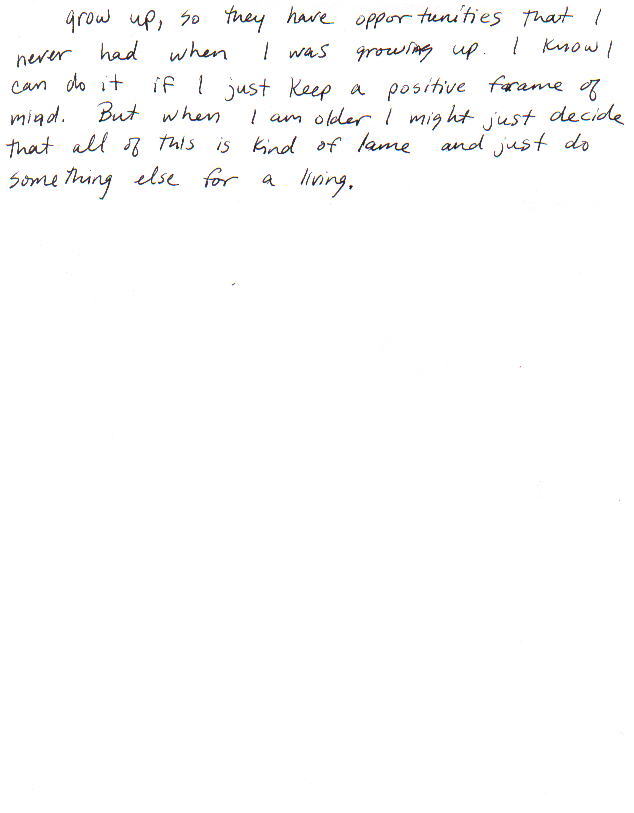 grow up, so they have opportunities that I
never had when I was growing up. I know I
can do it if I just keep a positive frame of
mind. But when I am older I might just decide
that all of this is kind of lame and just do
something else for a living.